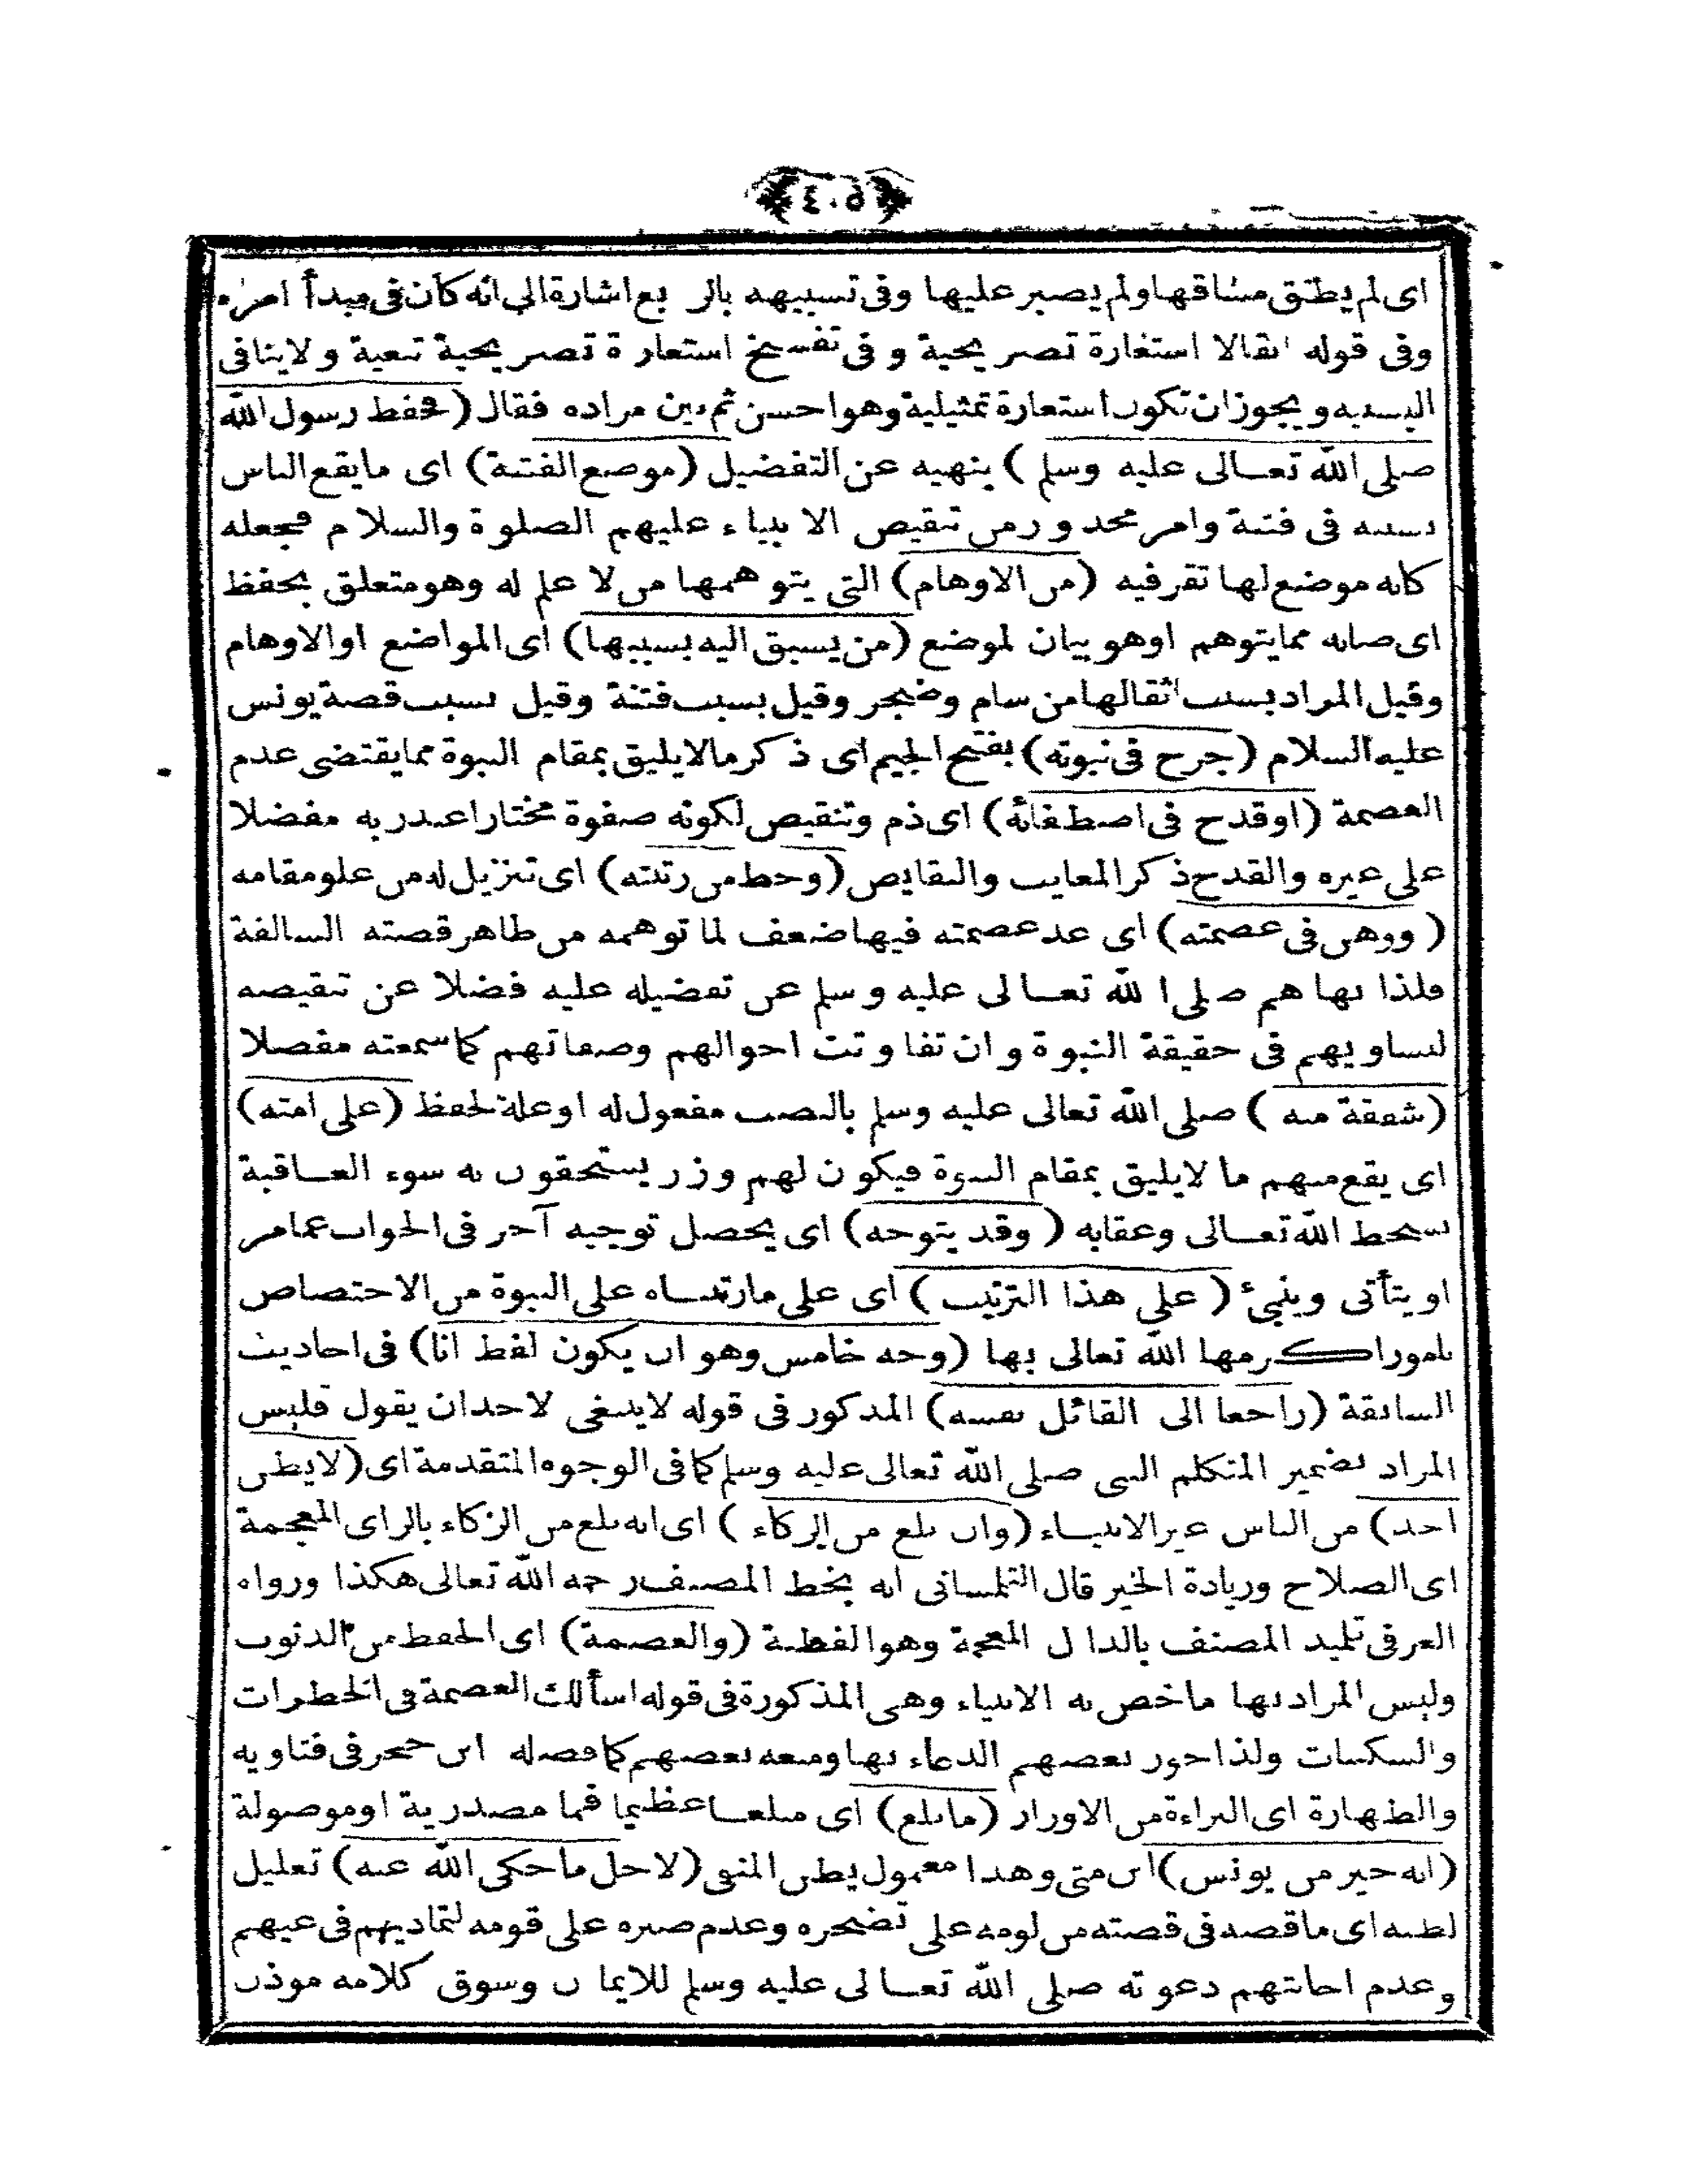 ﴿٤٠٥﴾
اى لم يطق مشاقها ولم يصبر عليها وفى تشبيهه بالربع اشارة الى انه كان فى مبدأ امره
وفى قوله اثقالا استعارة تصريحية وفى تفسخ استعارة تصريحية تبعية ولاينافى
التشبيه ويجوز ان تكون استعارة تمثيلية وهو احسن ثم بين مراده فقال (فحفظ رسول الله
صلى الله تعالى عليه وسلم) بنهيه عن التفضيل (موضع الفتنة) اى مايقع الناس
بسببه فى فتنة وامر محذور من تنقيص الانبياء عليهم الصلوة والسلام فجعله
كانه موضع لها تقر فيه (من الاوهام) التى يتوهمها من لا علم له وهو متعلق بحفظ
اى صانه ممايتوهم اوهو بيان لموضع (من يسبق اليه بسببها) اى المواضع اوالاوهام
وقيل المراد بسبب اثقالها من سام وضجر وقيل بسبب فتنة وقيل بسبب قصة يونس
عليه السلام (جرح فى نبوته) بفتح الجيم اى ذكر مالايليق بمقام النبوة مما يقتضى عدم
العصمة (اوقدح فى اصطفائه) اى ذم وتنقيص لكونه صفوة مختارا عند ربه مفضلا
على غيره والقدح ذكر المعايب والنقايص (وحط من رتبته) اى تنزيل له من علو مقامه
(ووهن فى عصمته) اى عد عصمته فيها ضعف لما توهمه من ظاهر قصته السالفة
فلذا نهاهم صلى الله تعالى عليه وسلم عن تفضيله عليه فضلا عن تنقيصه
لتساويهم فى حقيقة النبوة وان تفاوتت احوالهم وصفاتهم كما سمعته مفصلا
(شفقة منه) صلى الله تعالى عليه وسلم بالنصب مفعول له اوعلة لحفظ (على امته)
اى يقع منهم ما لايليق بمقام النبوة فيكون لهم وزر يستحقون به سوء العاقبة
بسخط الله تعالى وعقابه (وقد يتوجه) اى يحصل توجيه آخر فى الجواب عمامر
او يتأتى وينبئ (على هذا الترتيب) اى على مارتبناه على النبوة من الاختصاص
بامور اكرمها الله تعالى بها (وجه خامس وهو ان يكون لفظ انا) فى احاديث
السابقة (راجعا الى القائل نفسه) المذكور فى قوله لاينبغى لاحد ان يقول فليس
المراد بضمير المتكلم النبى صلى الله تعالى عليه وسلم كما فى الوجوه المتقدمة اى (لايظن
احد) من الناس غير الانبياء (وان بلغ من الزكاء) اى انه بلغ من الزكاء بالزاى المعجمة
اى الصلاح وزيادة الخير قال التلمسانى انه بخط المصنف رحمه الله تعالى هكذا ورواه
العرفى تلميذ المصنف بالدال المعجمة وهو الفطنة (والعصمة) اى الحفظ من الذنوب
وليس المراد بها ماخص به الانبياء وهى المذكورة فى قوله اسألك العصمة فى الخطرات
والسكنات ولذا جوز بعضهم الدعاء بها ومنعه بعضهم كما فصله ابن حجر فى فتاويه
والطهارة اى البراءة من الاوزار (مابلغ) اى مبلغا عظيما فما مصدرية اوموصولة
(انه خير من يونس) ابن متى وهذا معمول يظن المنفى (لاجل ماحكى الله عنه) تعليل
لظنه اى ماقصه فى قصته من لومه على تضجره وعدم صبره على قومه لتماديهم فى غيهم
وعدم اجابتهم دعوته صلى الله تعالى عليه وسلم للايمان وسوق كلامه موذن